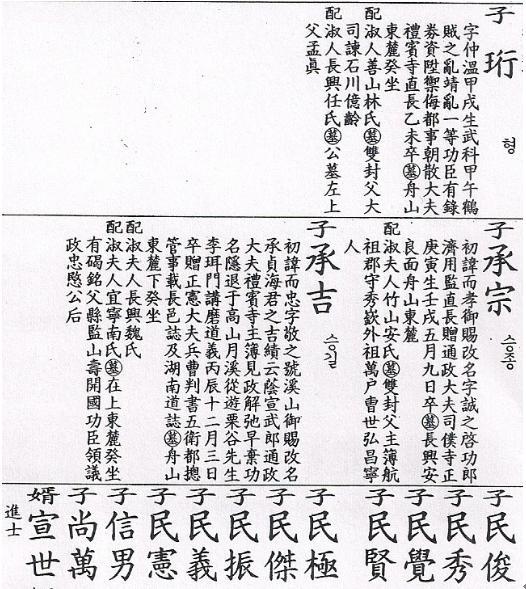 子珩 형
字仲溫甲戌生武科甲午鶴
賊之亂靖亂一等功臣有錄
券資陞禦侮都事朝散大夫
禮賓寺直長乙未卒墓舟山
東麓癸坐
配淑人善山林氏墓雙封父大
司諫石川億齡
配淑人長興任氏墓公墓左上
父孟眞
子承宗 승종
初諱而孝御賜改名字誠之啓功郎
濟用監直長贈通政大夫司僕寺正
庚寅生壬戌五月九日卒墓長興安
良面舟山東麓
配淑夫人竹山安氏墓雙封父主簿航
祖郡守秀嶔外祖萬戶曺世弘昌寧
人
子承吉 승길
初諱而忠字敬之號溪山御賜改名
承貞海君之吉績云蔭宣武郎通政
大夫禮賓寺主簿見政解弛早棄功
名隱退于高山月溪從遊栗谷先生
李珥門講磨道義丙辰十二月三日
卒贈正憲大夫兵曹判書五衛都摠
管事載長邑誌及湖南道誌墓舟山
東麓下癸坐
配淑夫人長興魏氏
配淑夫人宜寧南氏墓在上東麓癸坐
有碣銘父縣監山壽開國功臣領議
政忠愍公后
子民俊
子民秀
子民覺
子民賢
子民極
子民傑
子民振
子民義
子民憲
子信男
子尚萬
婿宣世
進士